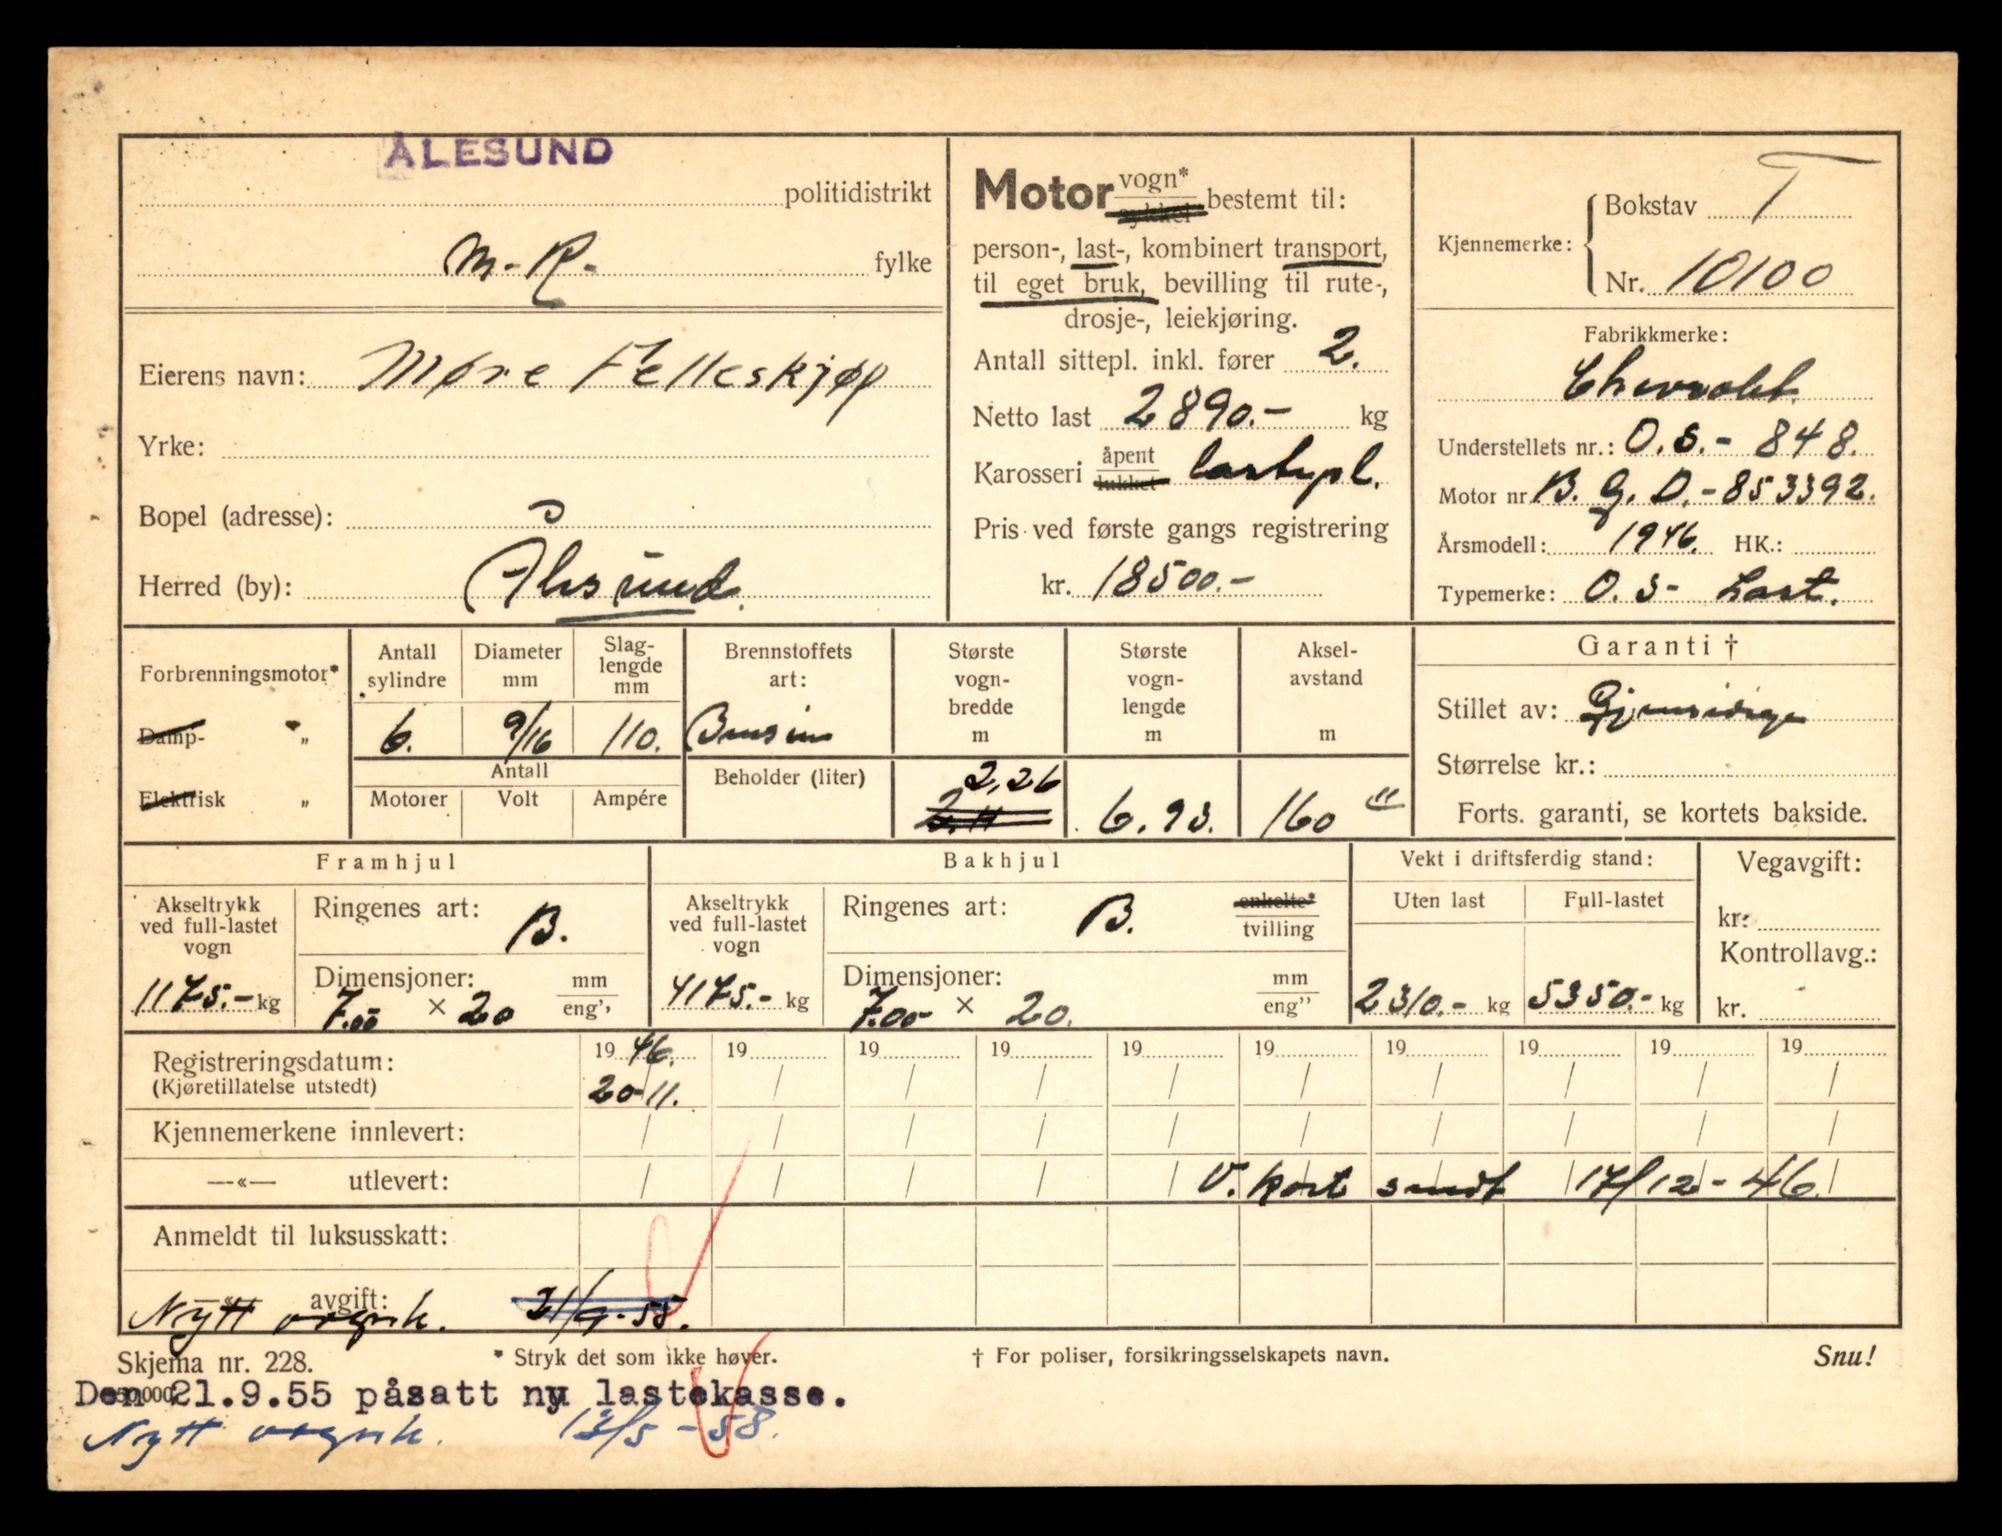 ÅLESUND
politidistrikt
M.-R.- fylke
Eierens navn: Møre Felleskjøp
Yrke:
Bopel (adresse):
Herred (by): Ålesund.
Motor vogn* sykkel bestemt til:
person-, last-, kombinert transport,
til eget bruk, bevilling til rute-,
drosje-, leiekjøring.
Antall sittepl. inkl. fører 2.
Netto last 2890.- kg
Karosseri åpent lukket lastepl.
Pris ved første gangs registrering
kr. 18500.-
Kjennemerke: Bokstav T
Nr. 10100
Fabrikkmerke:
Chevrolet
Understellets nr.: O.S.- 848.
Motor nr B.G.D.-853392.
Årsmodell: 1946. HK.:
Typemerke: O.S- Last.
Forbrenningsmotor*
Damp- „
Elektrisk „
Antall sylindre
6.
Diameter mm
9/16
Slaglengde mm
110.
Antall
Motorer Volt Ampére
Brennstoffets art:
Bensin
Beholder (liter)
Største vognbredde m
2,26
2.11
Største vognlengde m
6.93.
Akselavstand m
160 "
Garanti †
Stillet av: Gjensidige
Størrelse kr.:
Forts. garanti, se kortets bakside.
Framhjul
Akseltrykk ved full-lastet vogn
1175.- kg
Ringenes art: B.
Dimensjoner: mm eng"
7.00 × 20
Bakhjul
Akseltrykk ved full-lastet vogn
4175.- kg
Ringenes art: B. enkelte* tvilling
Dimensjoner: mm eng"
7.00- × 20.
Vekt i driftsferdig stand:
Uten last Full-lastet
2310.- kg 5350.- kg
Vegavgift:
kr:
Kontrollavg.:
kr.
Registreringsdatum: 1946. 19 19 19 19 19 19 19 19 19
(Kjøretillatelse utstedt) 20/11. / / / / / / / / /
Kjennemerkene innlevert: / / / / / / / / / /
—«— utlevert: / / / / / V. kort sendt 17/12-46.
Anmeldt til luksusskatt:
—«— avgift:
Nytt vognk. 21/9-55.
Skjema nr. 228. * Stryk det som ikke høver. † For poliser, forsikringsselskapets navn. Snu!
Den 21.9.55 påsatt ny lastekasse.
Nytt vognk. 13/5-58.